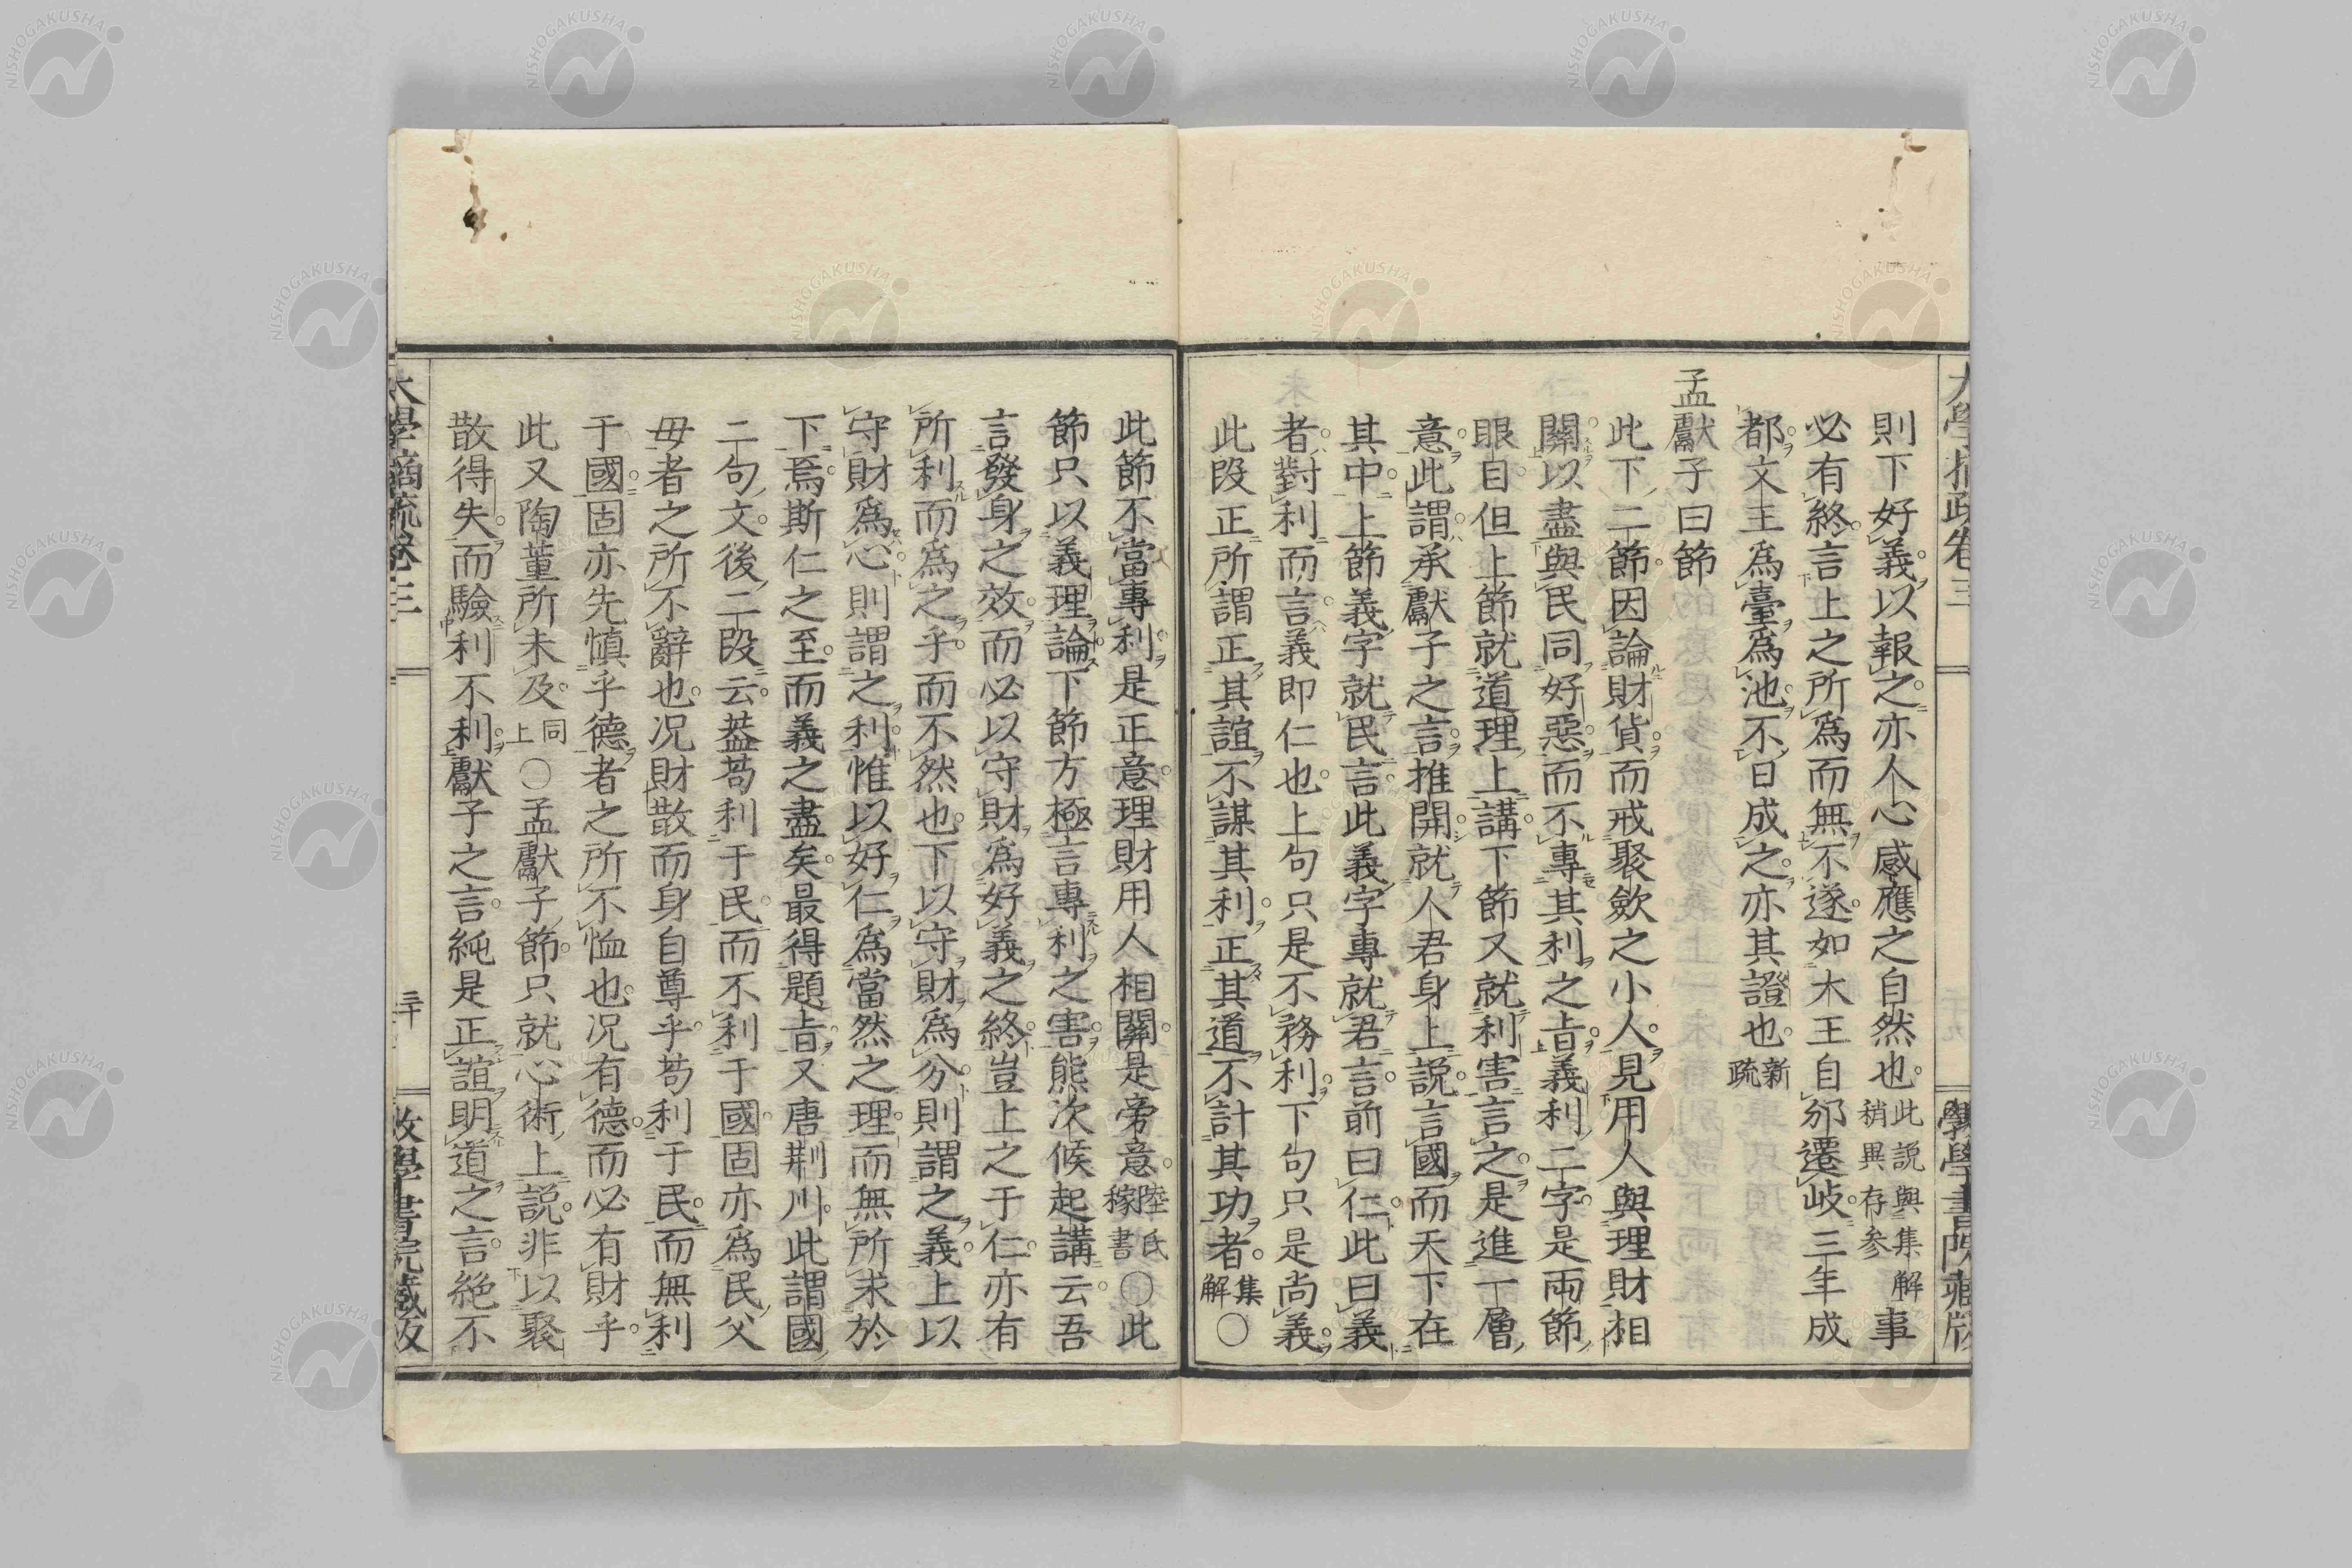 則下好義以報之亦人心感應之自然也此說與集解稍異存參事
必有終言上之所爲而無不遂如大王自邠遷岐三年成
都文王爲臺爲池不日成之亦其證也新疏
孟獻子曰節
此下二節因論財貨而戒聚斂之小人見用人與理財相
關以盡與民同好惡而不專其利之㫖義利二字是兩節
眼目但上節就道理上講下節又就利害言之是進一層
意此謂承獻子之言推開就人君身上說言國而天下在
其中上節義字就民言此義字專就君言前曰仁此曰義
者對利而言義即仁也上句只是不務利下句只是尚義
此段正所謂正其誼不謀其利正其道不計其功者集解〇
此節不當專利是正意理財用人相關是旁意陸氏稼書〇此
節只以義理論下節方極言專利之害熊次候起講云吾
言發身之效而必以守財爲好義之終豈上之于仁亦有
所利而爲之乎而不然也下以守財爲分則謂之義上以
守財爲心則謂之利惟以好仁爲當然之理而無所求於
下焉斯仁之至而義之盡矣最得題㫖又唐荆川此謂國
二句文後二段云葢苟利于民而不利于國固亦爲民父
毋者之所不辭也况財散而身自尊乎苟利于民而無利
于國固亦先愼乎德者之所不恤也况有德而必有財乎
此又陶董所未及同上〇孟獻子節只就心術上說非以聚
散得失而驗利不利獻子之言純是正誼明道之言絶不
大學摘疏卷三
三十
大學摘疏卷三
學書院藏版